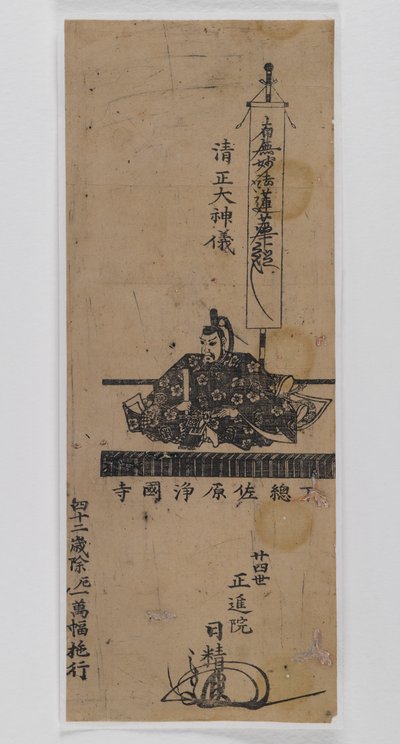 南無妙法蓮華経
清正大神儀
下總佐原浄國寺
廿四世
正進院
日精
四十二歳除厄一萬幅施行